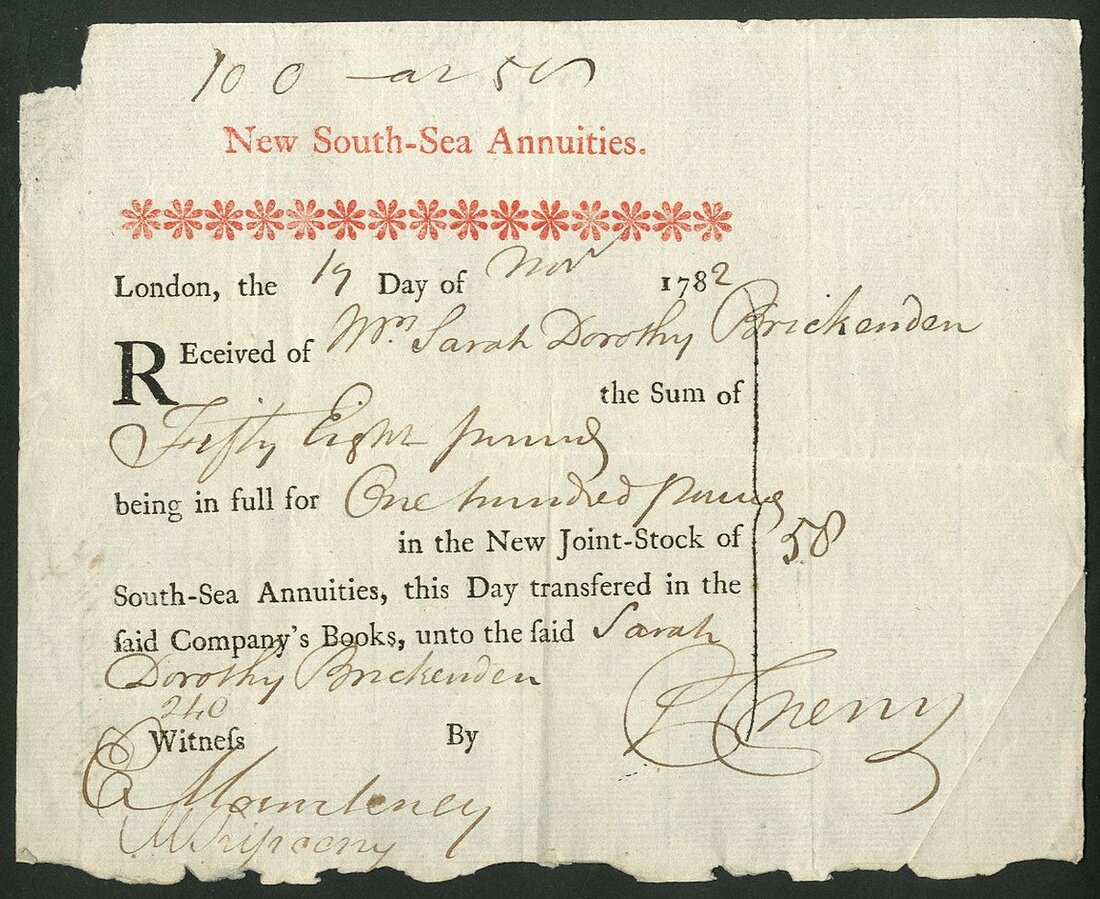 100 at 58
New South-Sea Annuities.
London, the 19 Day of Novr 1782
REceived of Mrs Sarah Dorothy Brickenden
the Sum of
Fifty Eight pounds
being in full for One hundred pounds
in the New Joint-Stock of
58
South-Sea Annuities, this Day transfered in the
ſaid Company's Books, unto the ſaid Sarah
Dorothy Brickenden
240
Witneſs By Cherry
E Mounteney